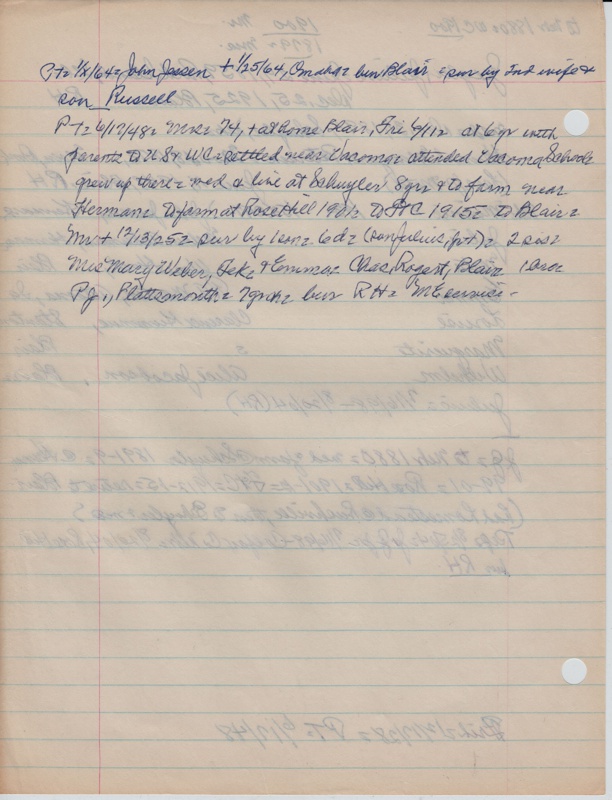 Pt= 1/28/64= John Jessen + 1/25/64, Omaha= bur Blair = sur by 2nd wife &
son Russell
Pt= 6/17/48= Mrs= 74, + at home Blair, Fri 6/11= at 6 yr with
parents to U S & WC= settled near Vacoma= attended Vacoma Schools
grew up there= med & live at Schuyler 8 yrs & to farm near
Herman= to farm at Rose Hill 1901= to 1915= to Blair=
Mr + 12/13/25= sur by 1 son= 6 d= (son Julius, ) = 2 sis=
Mrs Mary Weber, Tek= & Emma= Chas, Rogert, Blair 1 bro=
P J., Plattsmouth= 7 grch= bur RH= ME service-